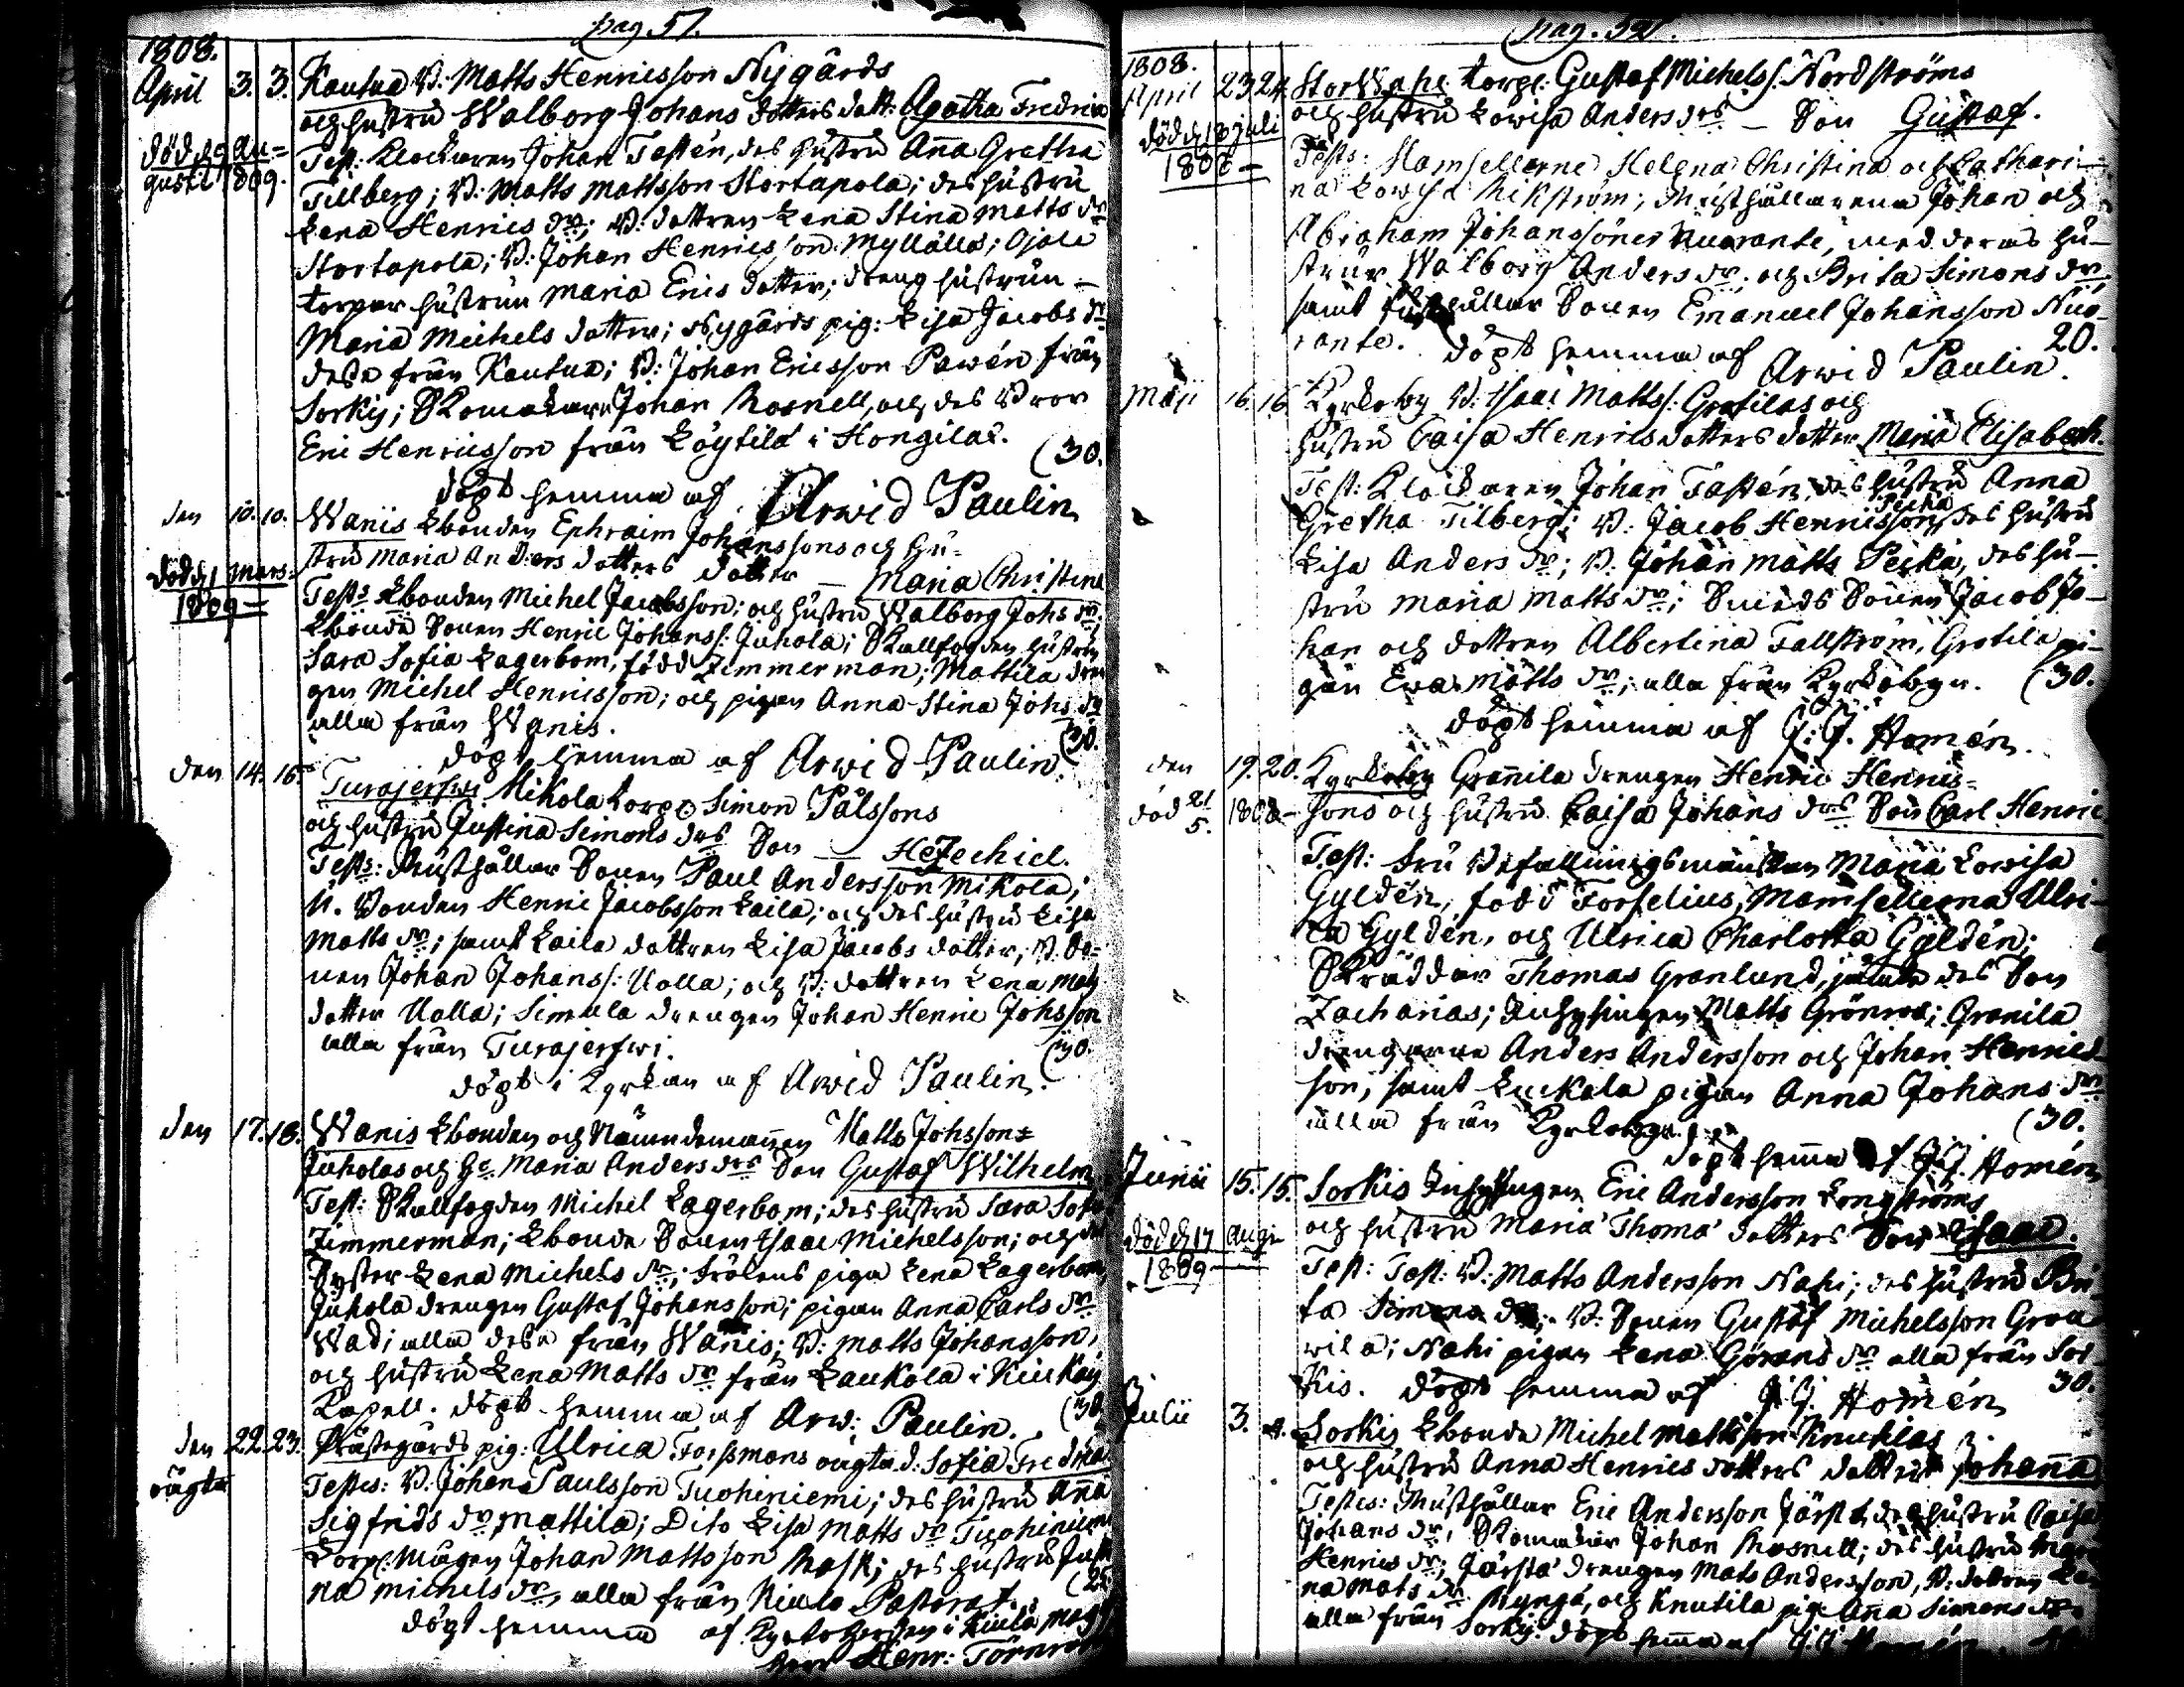 pag. 51.
1808.
April 3. 3. Kautua B: Matts Henricsson Nygårds
och hustru Walborg Johans dotters dott: Agatha Fredrica
död d 9 Au=
gusti 1809.
Test: Klockaren Johan Tasten, des hustru Aña Gretha
Tillberg; B: Matts Mattsson Stortapola; des hustru
Lena Henrics dr; B: dottren Lena Stina Matts dr
Stortapola; B: Johan Henricsson Myllälla; Ojala
torpar hustrun Maria Erics dotter; dreng hustrun
Maria Michels dotter; Nygårds pig: Lisa Jacobs dr
desa från Kautua; B: Johan Ericsson Pawén från
Sorkis; Skomakarn Johan Rosnell, och des Bror
Eric Henricsson från Löytilä i Hongilax. (30.
döpt hemma af Arwid Paulin
den 10. 10. Wanis Lbonden Ephraim Johanssons och hu=
stru Maria Anders dotters dotter — Maria Christina
död d 1 Mars
1809
Test: Lbonden Michel Jacobsson; och hustru Walborg Johs dr;
Lbonde Sonen Henric Johanss: Juhola; Skallfogden hustru
Sara Sofia Lagerbom, född Zimmerman; Mattila dren
gen Michel Henricsson; och pigan Anna Stina Johs dr
alla från Wanis. (30.
döpt hemma af Arwid Paulin.
den 14. 16. Turajerfwi Mikola torp: Simon Pålssons
och hustru Justina Simons drs Son — Hezechiel.
Test: Rusthållar Sonen Paul Andersson Mikola;
N. Bonden Henric Jacobsson Laila; och des hustru Lisa
Matts dr; samt Laila dottren Lisa Jacobs dotter; B. So=
nen Johan Johanss: Ualla; och B: dottren Lena Mats
dotter Ualla; Simula drengen Johan Henric Johsson
alla från Turajerfwi. (30.
döpt i Kyrkan af Arwid Paulin.
den 17. 18. Wanis Lbonden och Nämndemañen Matts Johssons
Juholas och h: Maria Anders drs Son Gustaf Wilhelm
Test: Skallfogden Michel Lagerbom; des hustru Sara Sofia
Zimmerman; Lbonde Sonen Isaac Michelsson; och des
Syster Lena Michels dr; Frölens piga Lena Lagerbom
Juhola drengen Gustaf Johansson; pigan Anna Carls dr
Wadi alla desa från Wanis; B: Matts Johansson,
och hustru Lena Matts dr från Laukola i Kiukais
Kapell. döpt hemma af Arw: Paulin. (30.
den 22. 23. Prästegårds pig: Ulrica Forssmans oägta d. Sofia Fredrica
oägta
Testes: B: Johan Paulsson Tuohiniemi; des hustru Aña
Sigfrids dr Mattila; Dito Lisa Matts dr Tuohiniemi
Torp: Mågen Johan Mattsson Rask; des hustru Justi
na Michels dr, alla från Kiulo Pastorat. (25
döpt hemma af Kyrkoherden i Kiulo Mag
Herr Henr: Törnroos
pag. 52.
1808.
April 23 24. Storwahe torp: Gustaf Michelss: Nordströms
och hustru Lowisa Anders drs — Son Gustaf.
död d 18 juli
1808
Tests: Mamsellerne Helena Christina och Cathari=
na Lowisa Wikström; Rusthållarena Johan och
Abraham Johanssöner Nuorante, med deras hu=
strur Walborg Anders dr; och Brita Simons dr,
samt Rusthållar Sonen Emanuel Johansson Nuo=
rante. 20.
döpt hemma af Arwid Paulin.
Maji 16. 16 Kyrkoby B: Isaac Matts: Grotilas och
hustru Caisa Henrics dotters dotter Maria Elisabeth.
Test: Klockaren Johan Tastén, des hustru Anna
Gretha Tilberg; B: Jacob Henricsson Peckä, des hustru
Lisa Anders dr; B. Johan Matts Peckä, des hu=
stru Maria Matts dr; Smeds Sonen Jacob Jo=
han och dottren Albertina Fallström, Grotila pi=
gan Ewa Matts dr; alla från Kyrkobyn. (30.
döpt hemma af J: J. Homén.
den 19. 20. Kyrkoby Grañila drengen Henric Henrics=
död 21/5. 1808 sons och hustru Caisa Johans drs Son Carl Henric
Test: Fru Befallningsmanskan Maria Lowisa
Gyldén, född Forselius, Mamsellerna Ulri=
ca Gyldén, och Ulrica Charlotta Gyldén;
Skräddar Thomas Granlund, jämte des Son
Zacharias; Inhysingen Matts Grönroos; Granila
drengarne Anders Andersson och Johan Henrics
son, samt Luckala pigan Anna Johans dr
alla från Kyrkobyn. (30.
döpt hemma af J. J. Homén
Junii 15. 15. Sorkis Inhysingen Eric Andersson Långströms
och hustru Maria Thomæ dotters Son Isaac.
död d 17 Augu
1809
Test: Test: B: Matts Andersson Nahi; des hustru Bri
ta Simons dr; B: Sonen Gustaf Michelsson Grou
wila; Nahi pigan Lena Görans dr alla från Sor
kis. döpt hemma af J. J. Homén 30.
Julii 3. 4. Sorkis Lbonde Michel Mattsson Knutilas
och hustru Anna Henrics dotters dotter Johaña
Testes: Rusthållar Eric Andersson Järstä des hustru Caisa
Johans dr, Skomakar Johan Rosnell; des hustru
Henrics dr; Järstä drengen Mats Andersson, B: dottren Le
na Mats dr Rynga, och Knutila pig: Aña Simons dr
alla från Sorkis. döpt hemma af J: J Homén.